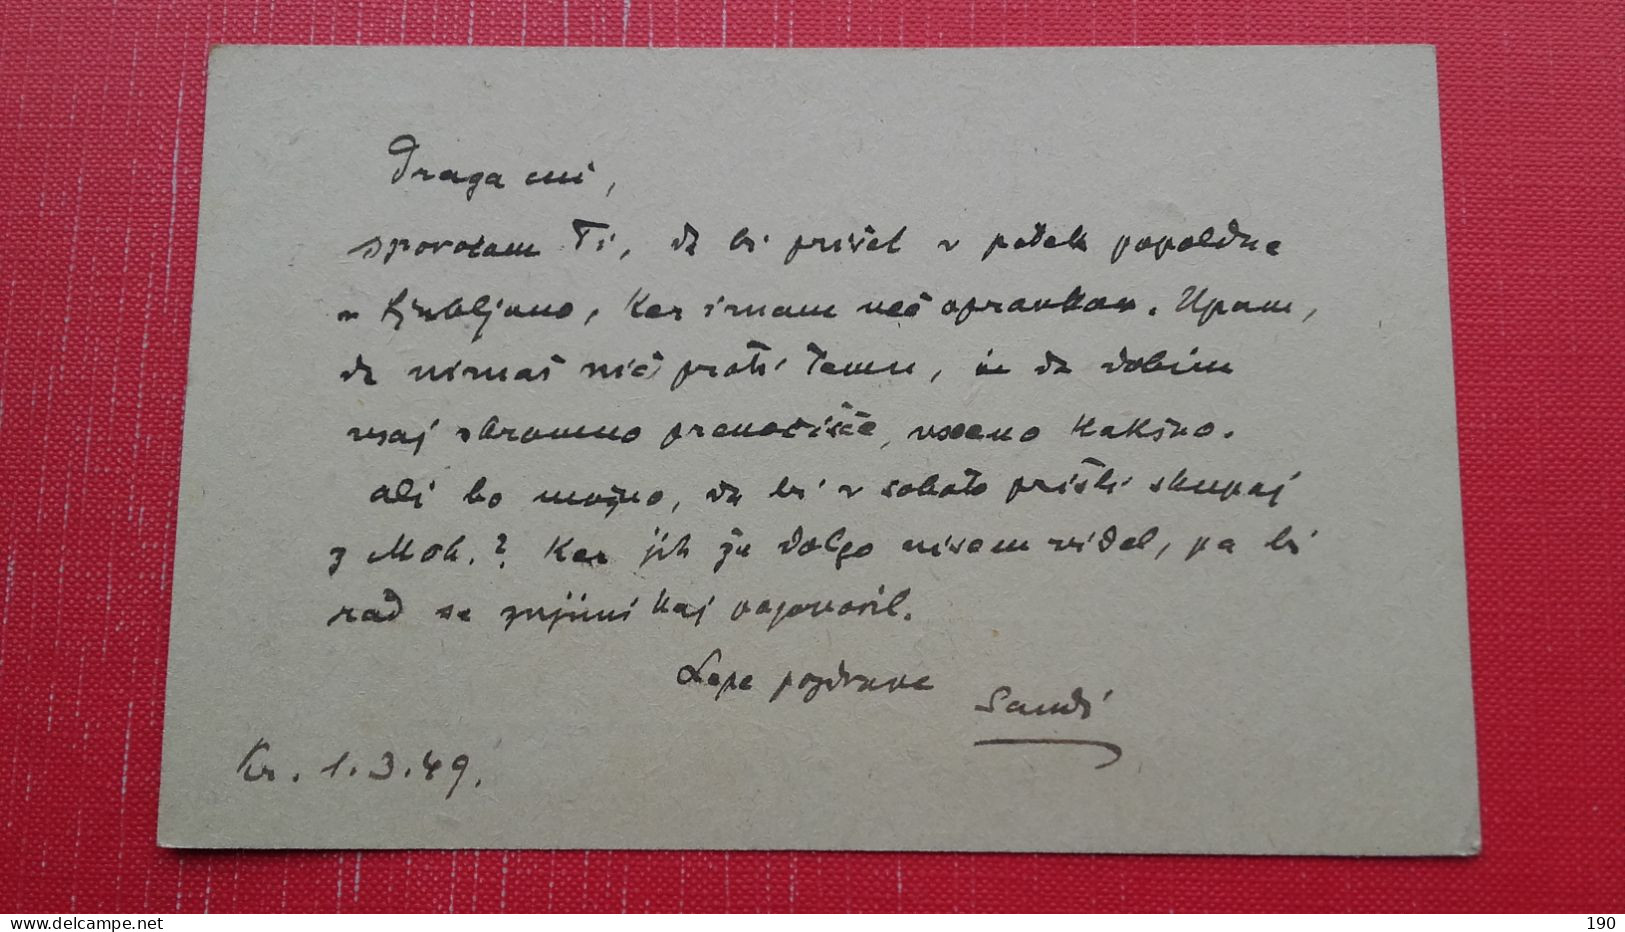 Draga mi,
sporočam Ti, da bi prišel v petek popoldne
v Ljubljano, ker imam več opravkov. Upam,
da nimaš nič proti temu, in da dobim
vsaj skromno prenočišče, vseeno kakšno.
Ali bo možno, da bi v soboto prišli skupaj
z Moh.? Ker jih že dolgo nisem videl, pa bi
rad se z njimi kaj pogovoril.
Lepe pozdrave
Sandi
Kr. 1.3.49.
www.delcampe.net
190